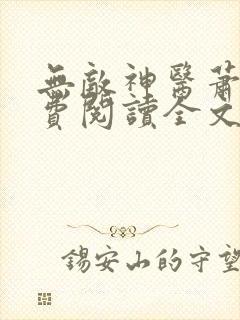 無敵神醫蕭
費閱讀全文
錫安山的守望